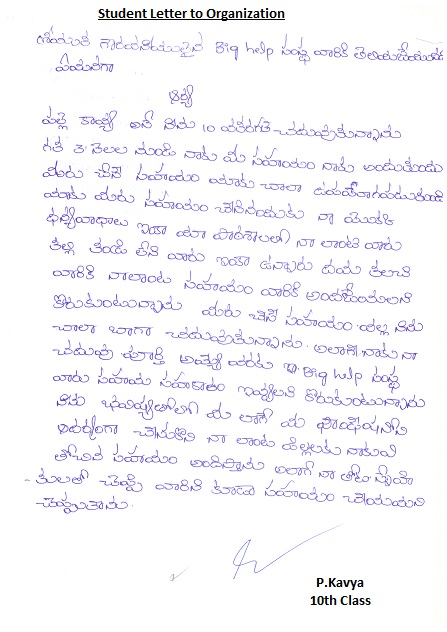 Student Letter to Organization
గౌరవనీయులైన Big help సంస్థ వారికి తెలియజేయునది
ఏమనగా
ఆర్య
కావ్య అనే నేను 10 వతరగతి చదువుతున్నాను
గత 3 నెలల నుండి నాకు మీ సహాయం నాకు అందుతుంది
మీరు చేసే సహాయం మాకు చాలా ఉపయోగపడుతుంది
మాకు మీరు సహాయం చేసినందుకు నా యొక్క
ధన్యవాదాలు ఇంకా మా పాఠశాలలో నా లాంటి వారు
తల్లి తండ్రి లేని వారు ఇంకా ఉన్నారు దయ తలచి
వారికి నాలాంటి సహాయం వారికి అందజేయాలని
కోరుకుంటున్నాను మీరు చేసే సహాయం వల్ల నేను
చాలా బాగా చదువుతున్నాను. అలాగే నాకు నా
చదువు పూర్తి అయ్యే వరకు Big help సంస్థ
వారు సహాయ సహకారం ఇవ్వాలని కోరుకుంటున్నాను
నేను భవిష్యత్తులో మీ లాగే మీ
ఆదర్శంగా చేసుకొని నా లాంటి పిల్లలకు నాకు
తోచిన సహాయం అందిస్తాను అలాగే నా తోటి స్నేహి
-తులతో చెప్పి వారిని కూడా సహాయం చేయమని
చెప్పుతాను.
P.Kavya
10th Class